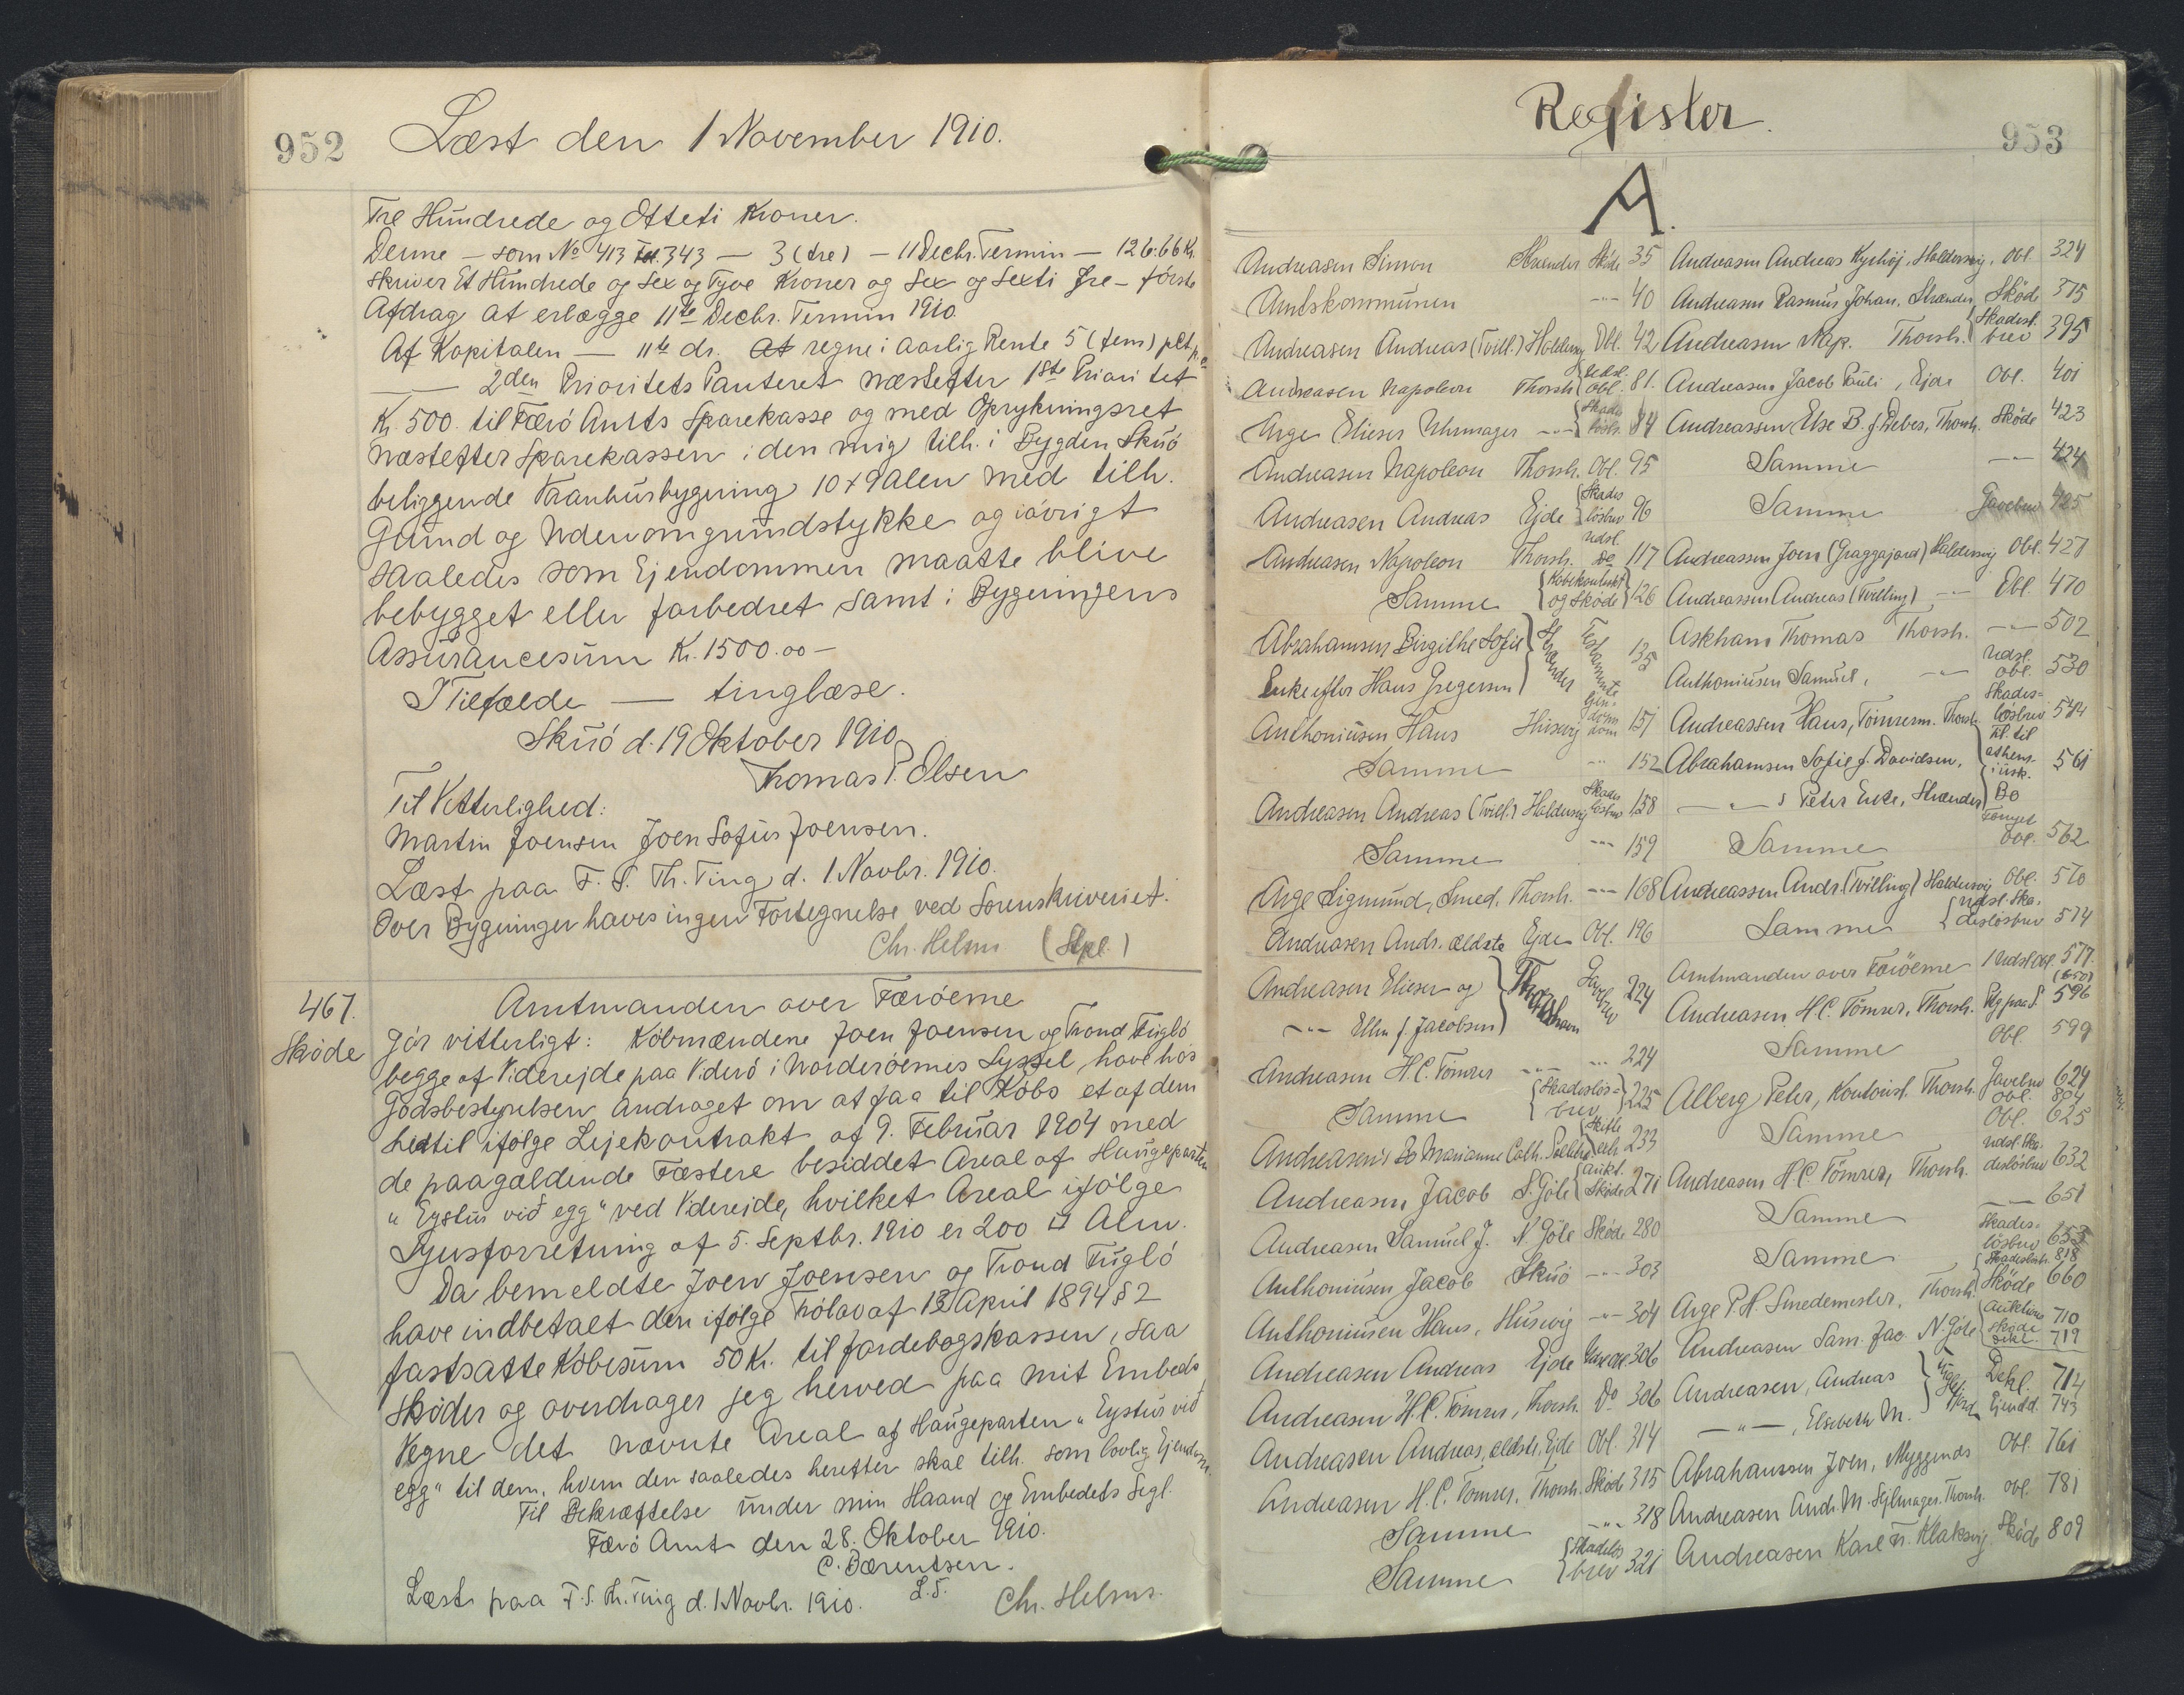 952
Læst den 1 November 1910.
Tre Hundrede og Otteti Kroner.
Denne – som No 413 Fol. 343 – 3 (tre) – 11 Decbr. Termin – 126.66 Kr.
skriver Et Hundrede og Sex og Tyve Kroner og Sex og Sexti Øre – første
Afdrag at erlægge 11te Decbr. Termin 1910
Af Kapitalen — 11te ds. at regne i aarlig Rente 5 (fem) pCt.
— 2den Prioritets Panteret næstefter 1ste Prioritet
Kr. 500. til Færø Amts Sparekasse og med Oprykningsret
næstefter Sparekassen i den mig tilh. i Bygden Skuø
beliggende Vaanhusbygning 10 x 9 Alen med tilh.
Grund og Udenomgrundstykke og iøvrigt
saaledes som Ejendommen maatte blive
bebygget eller forbedret samt i Bygningens
Assurancesum Kr. 1500.00 –
I Tilfælde — tinglæse.
Skuø d. 19 Oktober 1910
Thomas P. Olsen
Til Vitterlighed:
Martin Joensen Joen Sofus Joensen.
Læst paa F. S. Th. Ting d. 1 Novbr. 1910.
Over Bygninger haves ingen Fortegnelse ved Sorenskriveriet.
Chr. Helms (Stpl.)
467.
Skøde
Amtmanden over Færøerne
Gør vitterligt: Købmændene Joen Joensen og Trond Fuglø
begge af Viderejde paa Viderø i Norderøernes Syssel have hos
Godsbestyrelsen andraget om at faa til Købs et af dem
hidtil ifølge Lejekontrakt af 9. Februar 1904 med
de paagældende Fæstere besiddet Areal af Haugeparten
"Eystur við egg" ved Viderejde, hvilket Areal ifølge
Synsforretning af 5. Septbr. 1910 er 200 □ Alen.
Da bemeldte Joen Joensen og Trond Fuglø
have indbetalt den ifølge Frølov af 13 April 1894 § 2
fastsatte Købesum 50 Kr. til Jordebogskassen, saa
skøder og overdrager jeg herved paa mit Embeds
Vegne det nævnte Areal af Haugeparten "Eystur við
egg" til dem, hvem den saaledes herefter skal tilh. som lovlig Ejendom.
Til Bekræftelse under min Haand og Embedets Segl.
Færø Amt den 28. Oktober 1910.
C. Bærentsen.
L.S.
Læst paa F. S. Th. Ting d. 1 Novbr. 1910. Chr. Helms.
Register.
953
A.
Andreasen Simon Strænder Skøde 35
Amtskommunen -"- 40
Andreasen Andreas (Tvill.) Haldersvig Obl. 42
Andreasen Napoleon Thorsh. Obl. 81.
Arge Elieser Uhrmager -"- Skadesløsbr. 84
Andreasen Napoleon Thorsh. Obl. 95
Andreasen Andreas Ejde Skadesløsbrev 96
Andreasen Napoleon Thorsh. Udsl. Do 117
Samme Købekontrakt og Skøde 126
Abrahamsen Birgithe Sofie Strænder Testamente 135
Enke efter Hans Gregersen
Anthoniusen Hans Husevig Ejendom 151
Samme -"- 152
Andreasen Andreas (Tvill.) Haldersvig Skadesløsbrev 158
Samme -"- 159
Arge Sigmund, Smed, Thorsh. -"- 168
Andreasen Andr. ældste Ejde Obl. 196
Andreasen Elieser og Thorshavn Gavebrev 224
-"- Ellen f. Jacobsen
Andreasen H.C. Tømrer -"- -"- 224
Samme Skadesløsbrev 225
Andreasen's Bo Marianne Cath. Skifteextr. 233
Andreasen Jacob S. Gøte Aukt. Skøde 271
Andreasen Samuel J. N. Gøte Skøde 280
Anthoniusen Jacob Skuø -"- 303
Anthoniusen Hans, Husevig -"- 304
Andreasen Andreas Ejde 306
Andreasen H.C. Tømrer, Thorsh. Do 306
Andreasen Andreas, ældste, Ejde Obl. 314
Andreasen H.C. Tømrer, Thorsh. Skøde 315
Samme -"- 318
Samme Skadesløsbrev 321
Andreasen Andreas Kyrhøj, Haldersvig, Obl. 324
Andreasen Rasmus Johan, Strænder Skøde 375
Andreasen Nap. Thorsh. Skadesl. brev 395
Andreasen Jacob Pauli, Ejde Obl. 401
Andreassen Else B. f. Debes, Thorsh. Skøde 423
Samme -"- 424
Samme Gavebrev 425
Andreassen Joen (Graggajord) Haldersvig Obl. 427
Andreassen Andreas (Tvilling) -"- Obl. 470
Askham Thomas Thorsh. -"- 502
Anthoniusen Samuel, -"- Udsl. obl. 530
Andreassen Hans, Tømrerm. Thorsh. Skadesløsbrev 544
Abrahamsen Sofie f. Davidsen, Bo 561
-"- s Peter Enke, Strænder
Samme Obl. 562
Andreassen Andr. (Tvilling) Haldersvig Obl. 570
Samme Udsl. Skadesløsbrev 574
Amtmanden over Færøerne Udsl. Obl. 577
Andreasen H.C. Tømrer, Thorsh. 596
Samme Obl. 599
Alberg Peter, Kontorist, Thorsh. Gavebrev 624
Obl. 804
Samme Obl. 625
Andreasen H.C. Tømrer, Thorsh. Udsl. Skadesløsbrev 632
Samme -"- 651
Samme Skadesløsbrev 653
Skadesløsbr. 818
Arge P.H. Smedemester, Thorsh. Skøde 660
Andreasen Sam. Jac. N. Gøte Auktions skøde 710
719
Andreasen, Andreas Dekl. 714
-"-, Elsebeth M. Ejendd. 743
Abrahamsen Joen, Myggenæs Obl. 761
Andreasen Andr. M. Sejlmager, Thorsh. Obl. 781
Andreasen Karl Fr. Klaksvig Skøde 809